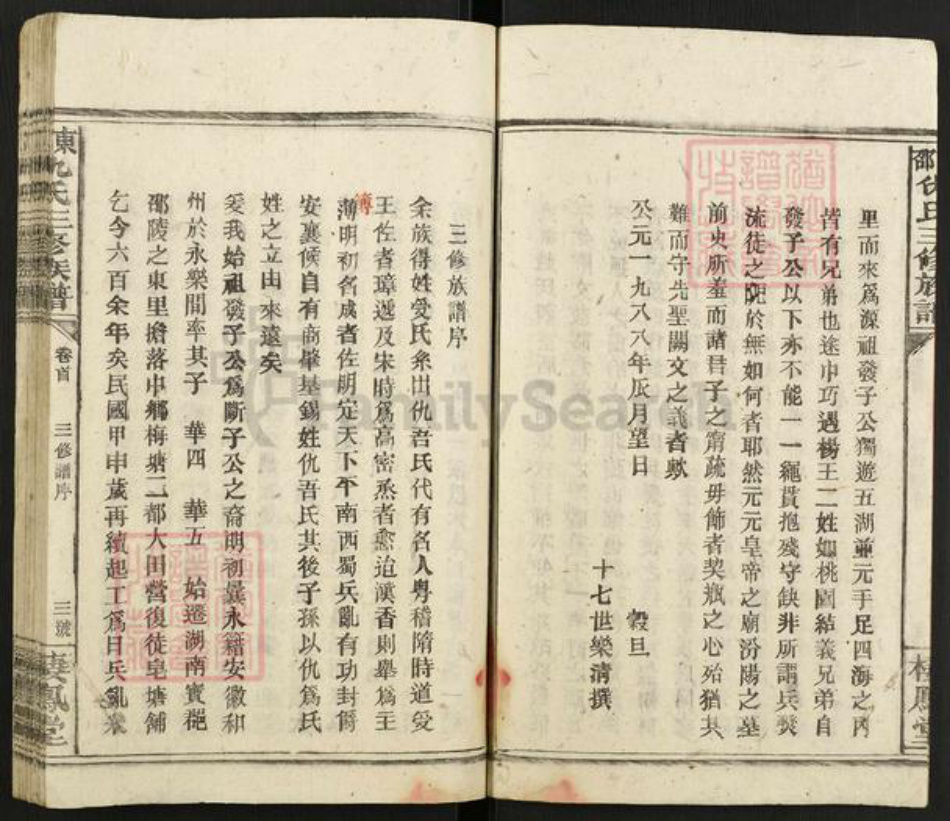 里而來爲源祖發子公獨遊五湖並元手足四海之內
皆有兄弟也途中巧遇楊王二姓如桃園結義兄弟自
發子公以下亦不能一一繩貫抱殘守缺非所謂兵燹
流徒之阨於無如何者耶然元元皇帝之廟汾陽之墓
前史所羞而諸君子之甯疏毋飾者契瓶之心殆猶共
難而守先聖闕文之義者歟
公元一九八八年辰月望日 穀旦
十七世樂清撰
三修族譜序
余族得姓受氏糸出仇吾氏代有名人粵稽隋時道受
王佐者璋遞及宋時爲高密烝者愈迨漢香則舉爲主
簿
薄明初名成者佐明定天下平南西蜀兵亂有功封爵
安襄候自有商肇基錫姓仇吾氏其後子孫以仇爲氏
姓之立由來遠矣
爰我始祖發子公爲斷子公之裔明初異永籍安徽和
州於永樂間率其子 華四 華五 始遷湖南寶慶
邵陵之東里擔落中鄉梅塘二都大田營復徒皂塘舖
乞今六百余年矣民國甲申歲再續起工爲日兵亂業
東仇氏三修族譜
卷首
三修譜序
三號
棲鳳堂
FamilySearch